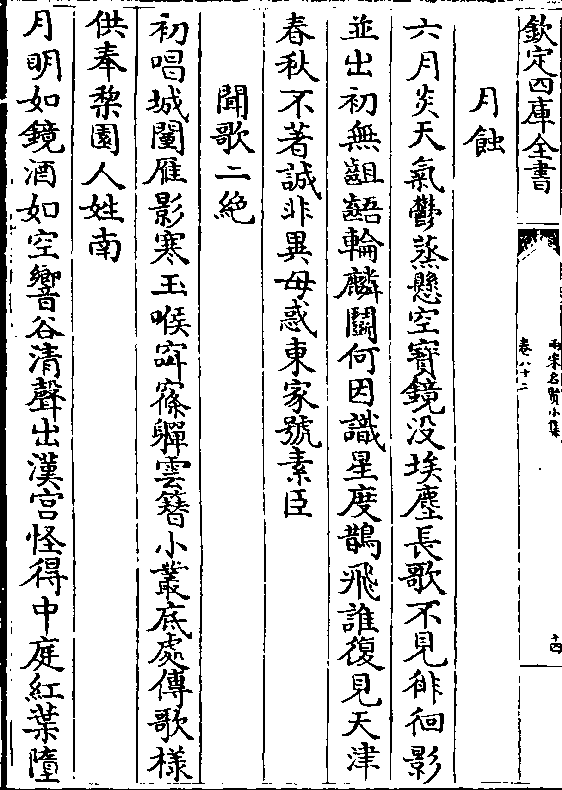 欽定四庫全書
兩宋名賢小集
卷八十二
十四
月蝕
六月炎天氣鬱蒸懸空寶鏡没埃塵長歌不見徘徊影
並出初無齟齬輪麟鬭何因識星度鵲飛誰復見天津
春秋不著誠非異毋惑東家號素臣
聞歌二絶
初唱城闉雁影寒玉喉窈窕嚲雲簪小叢底處傳歌様
供奉梨園人姓南
月明如鏡酒如空響谷清聲出漢宫怪得中庭紅葉墮